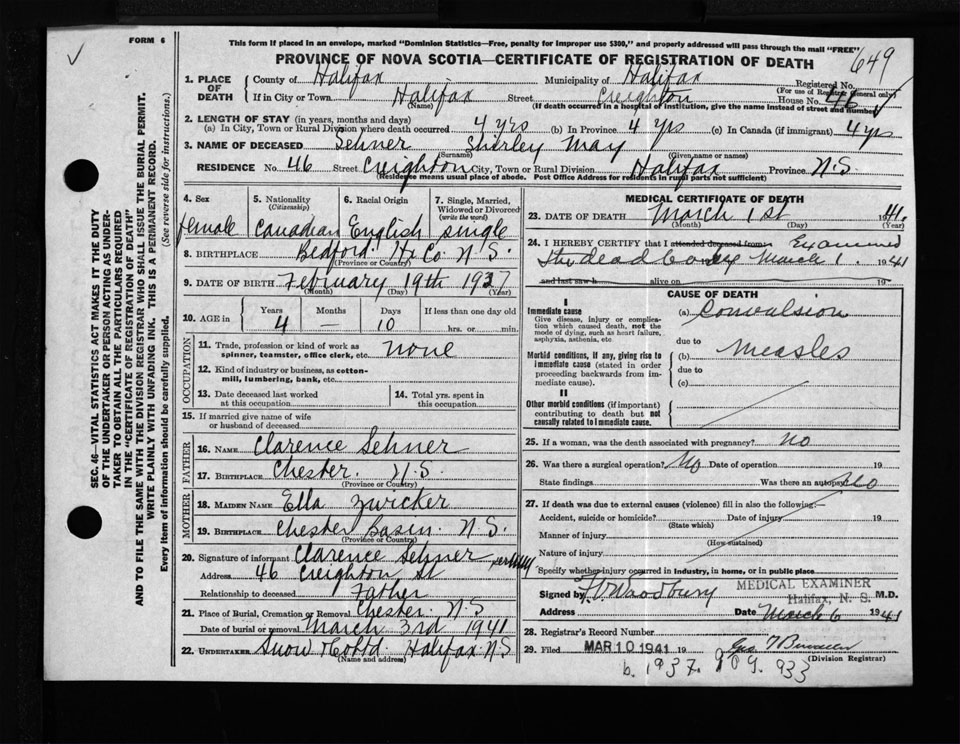 FORM 6
This form if placed in an envelope, marked "Dominion Statistics—Free, penalty for improper use $300," and properly addressed will pass through the mail "FREE"
PROVINCE OF NOVA SCOTIA—CERTIFICATE OF REGISTRATION OF DEATH
649
1. PLACE OF DEATH County of Halifax Municipality of Halifax Registered No.
(For use of Registrar General only)
If in City or Town Halifax Street Creighton House No. 46
(Name) (If death occurred in a hospital of institution, give the name instead of street and number)
2. LENGTH OF STAY (in years, months and days)
(a) In City, Town or Rural Division where death occurred 4 yrs (b) In Province 4 yrs (c) In Canada (if immigrant) 4 yrs
3. NAME OF DECEASED Sehner Shirley May
(Surname) (Given name or names)
RESIDENCE No. 46 Street Creighton City, Town or Rural Division Halifax Province N.S.
(Residence means usual place of abode. Post Office Address for residents in rural parts not sufficient)
4. Sex 5. Nationality (Citizenship) 6. Racial Origin 7. Single, Married, Widowed or Divorced (write the word)
female Canadian English single
8. BIRTHPLACE Bedford. Hx Co N.S.
(Province or Country)
9. DATE OF BIRTH February 19th 1937
(Month) (Day) (Year)
10. AGE in Years Months Days If less than one day old
4 — 10 hrs. or min.
OCCUPATION
11. Trade, profession or kind of work as spinner, teamster, office clerk, etc. none
12. Kind of industry or business, as cotton-mill, lumbering, bank, etc.
13. Date deceased last worked at this occupation
14. Total yrs. spent in this occupation
15. If married give name of wife or husband of deceased
FATHER
16. NAME Clarence Sehner
17. BIRTHPLACE Chester. N.S.
(Province or Country)
MOTHER
18. MAIDEN NAME Ella Zwicker
19. BIRTHPLACE Chester Basin. N.S.
(Province or Country)
20. Signature of informant Clarence Sehner
Address 46 Creighton St
Relationship to deceased Father
21. Place of Burial, Cremation or Removal Chester. N.S
Date of burial or removal March 3rd 1941
22. UNDERTAKER Snow & Co Ltd. Halifax N.S
(Name and address)
MEDICAL CERTIFICATE OF DEATH
23. DATE OF DEATH March 1st 1941.
(Month) (Day) (Year)
24. I HEREBY CERTIFY that I attended deceased from Examined
the dead body March 1. 1941
and last saw h alive on 19
CAUSE OF DEATH
I
Immediate cause (a) Convulsion
Give disease, injury or complication which caused death, not the mode of dying, such as heart failure, asphyxia, asthenia, etc.
due to
Morbid conditions, if any, giving rise to immediate cause (stated in order proceeding backwards from immediate cause).
(b) Measles
due to
(c)
II
Other morbid conditions (if important) contributing to death but not causally related to immediate cause.
25. If a woman, was the death associated with pregnancy? no
26. Was there a surgical operation? No Date of operation 19
State findings Was there an autopsy? No
27. If death was due to external causes (violence) fill in also the following:—
Accident, suicide or homicide? Date of injury 19
(State which)
Manner of injury
(How sustained)
Nature of injury
Specify whether injury occurred in industry, in home, or in public place
MEDICAL EXAMINER
Halifax, N. S.
Signed by Woodbury M.D.
Address Date March 6 1941
28. Registrar's Record Number
29. Filed MAR 10 1941 19
(Division Registrar)
b. 1937. 109. 933
SEC. 46—VITAL STATISTICS ACT MAKES IT THE DUTY
OF THE UNDERTAKER OR PERSON ACTING AS UNDER-
TAKER TO OBTAIN ALL THE PARTICULARS REQUIRED
IN THE "CERTIFICATE OF REGISTRATION OF DEATH"
AND TO FILE THE SAME WITH THE DIVISION REGISTRAR WHO SHALL ISSUE THE BURIAL PERMIT.
WRITE PLAINLY WITH UNFADING INK. THIS IS A PERMANENT RECORD.
Every item of information should be carefully supplied. (See reverse side for instructions.)